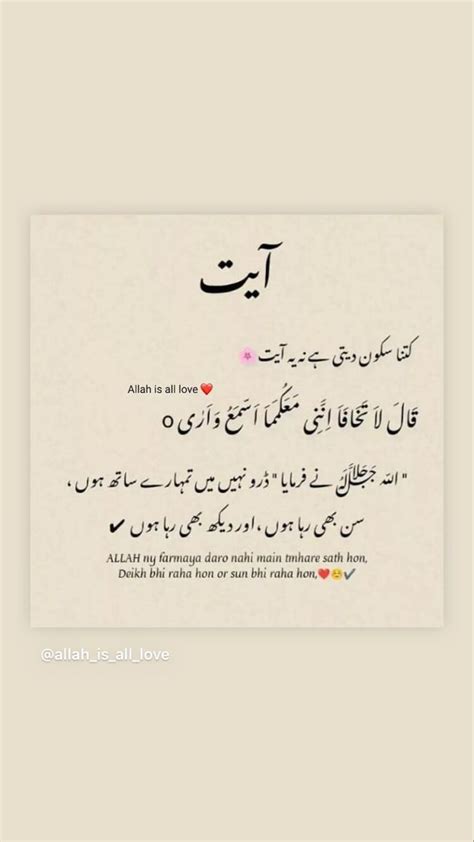 آیت
کتنا سکون دیتی ہے نہ یہ آیت🌸
Allah is all love ❤️
قَالَ لَا تَخَافَا اِنَّنِى مَعَكُمَا اَسْمَعُ وَاَرٰى o
" اللہ ﷻ نے فرمایا " ڈرو نہیں میں تمہارے ساتھ ہوں ،
سن بھی رہا ہوں ،اور دیکھ بھی رہا ہوں ✔
ALLAH ny farmaya daro nahi main tmhare sath hon,
Deikh bhi raha hon or sun bhi raha hon,❤️☺️✔
@allah_is_all_love